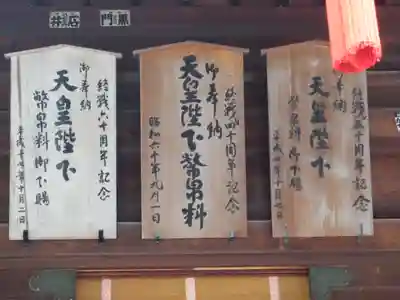 井
店
門
黒
終戦六十周年記念
御奉納
天皇陛下
幣帛料御下賜
平成十七年十月二日
終戦四十周年記念
御奉納
天皇陛下幣帛料
昭和六十年九月一日
終戦五十周年記念
奉納
天皇陛下
幣帛料御下賜